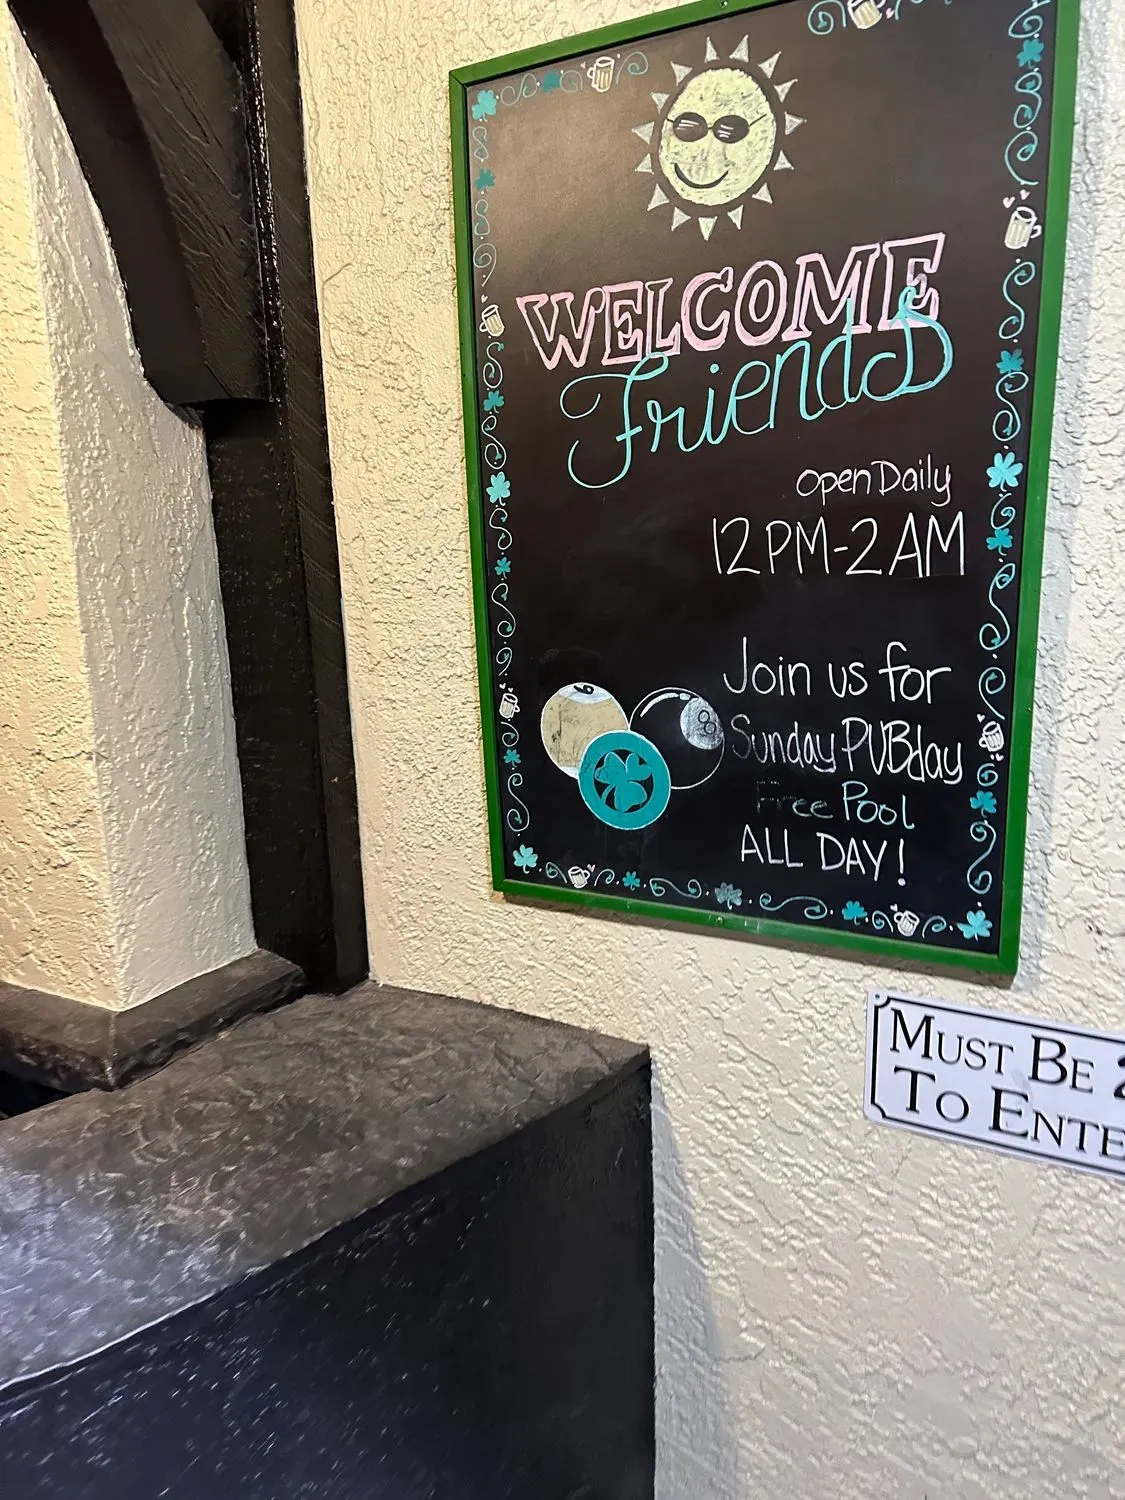 WELCOME
Friends
Open Daily
12 PM-2 AM
Join us for
Sunday PUBday
Free Pool
ALL DAY!
8
MUST BE
TO ENTE